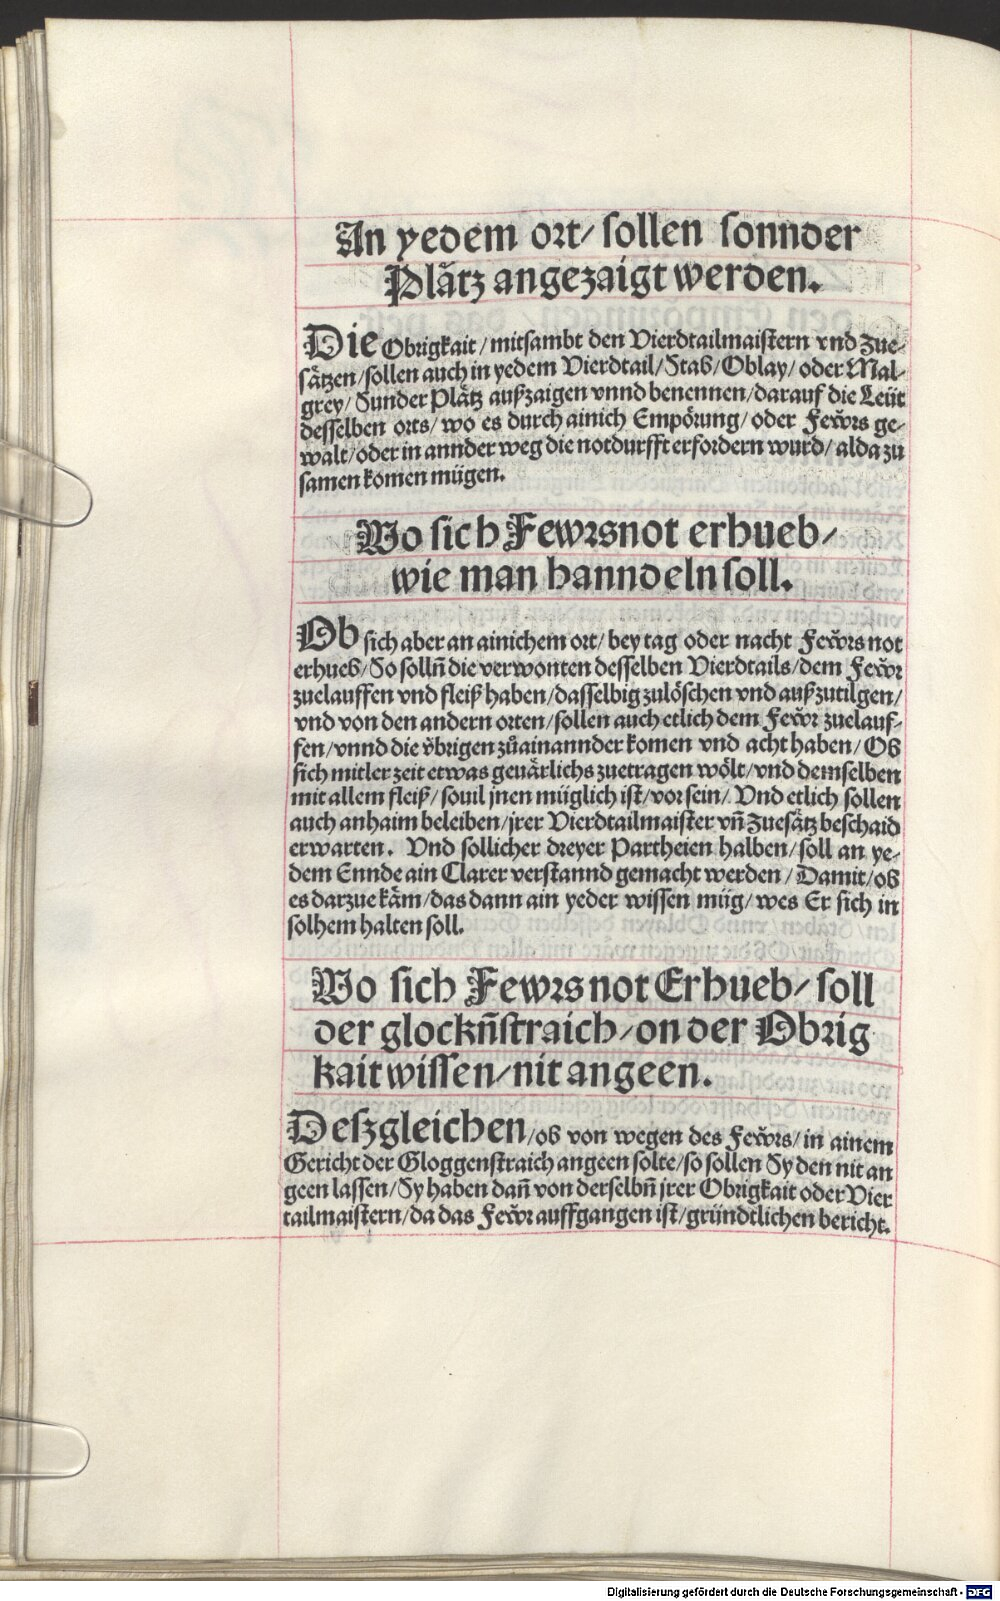 An yedem ort/ sollen sonnder
Plätz angezaigt werden.
Die Obrigkait/ mitsambt den Vierdtailmaistern vnd Zue-
sätzen/ sollen auch in yedem Vierdtail/ Stab/ Oblay/ oder Mal-
grey/ Sunder Plätz außzaigen vnnd benennen/ darauf die Leüt
desselben orts/ wo es durch ainich Empörung/ oder Fewrs ge-
walt/ oder in annder weg die notdurfft erfordern wurd/ alda zu
samen komen mügen.
Wo sich Fewrsnot erhueb/
wie man hanndeln soll.
Ob sich aber an ainichem ort/ bey tag oder nacht Fewrs not
erhueb/ So solln̄ die verwonten desselben Vierdtails/ dem Fewr
zuelauffen vnd fleiß haben/ dasselbig zulöschen vnd außzutilgen/
vnd von den andern orten/ sollen auch etlich dem Fewr zuelauf-
fen/ vnnd die vͤbrigen zůainannder komen vnd acht haben/ Ob
sich mitler zeit etwas geuärlichs zuetragen wölt/ vnd demselben
mit allem fleiß/ souil jnen müglich ist/ vor sein/ Vnd etlich sollen
auch anhaim beleiben/ jrer Vierdtailmaister vn̄ Zuesätz beschaid
erwarten. Vnd sollicher dreyer Partheien halben/ soll an ye-
dem Ennde ain Clarer verstannd gemacht werden/ Damit/ ob
es darzue käm/ das dann ain yeder wissen müg/ wes Er sich in
solhem halten soll.
Wo sich Fewrsnot Erhueb/ soll
der glockn̄straich/ on der Obrig
kait wissen/ nit angeen.
Deszgleichen/ ob von wegen des Fewrs/ in ainem
Gericht der Gloggenstraich angeen solte/ so sollen Sy den nit an
geen lassen/ Sy haben dan̄ von derselbn̄ jrer Obrigkait oder Vier
tailmaistern/ da das Fewr auffgangen ist/ gründtlichen bericht.
Digitalisierung gefördert durch die Deutsche Forschungsgemeinschaft - DFG